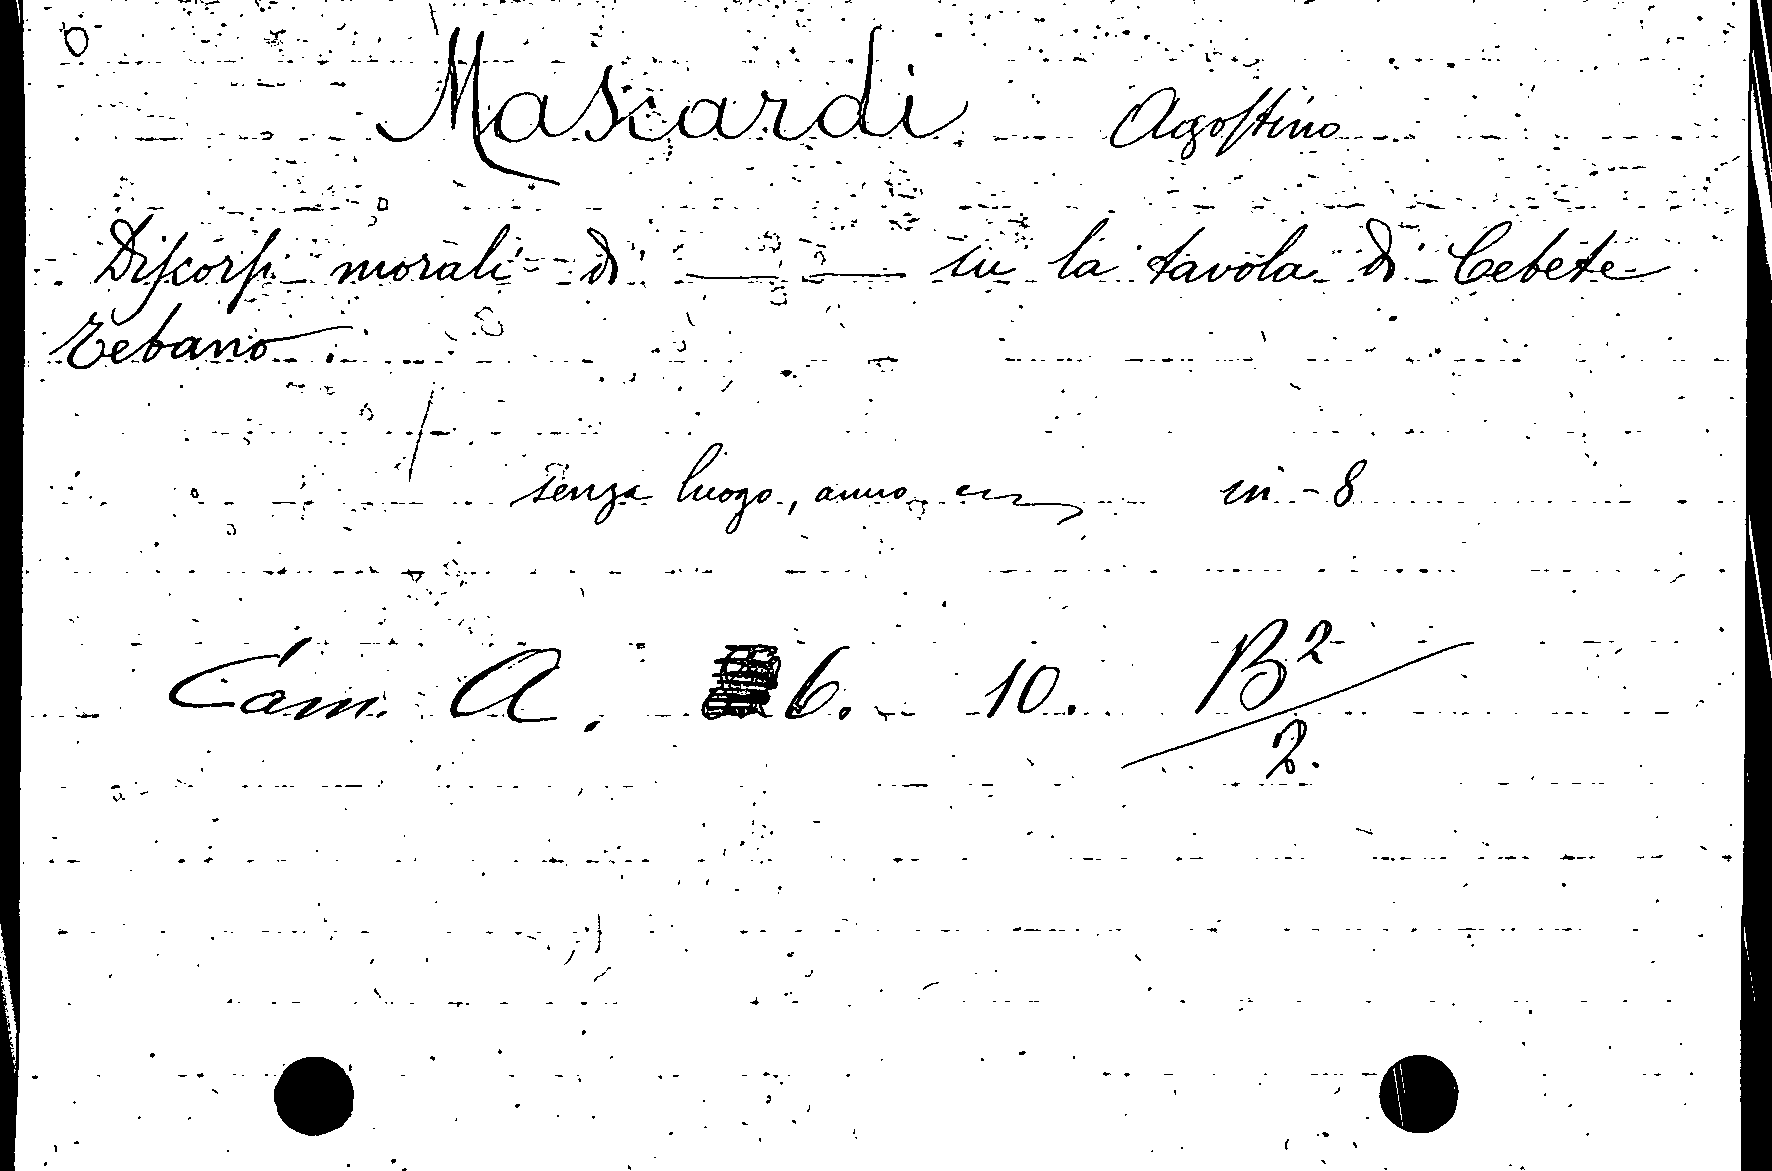 Mascardi Agostino
Discorsi morali di — — su la tavola di Cebete
Tebano.
senza luogo, anno, ecc in-8
Cam. A. 6. 10. B2/2.